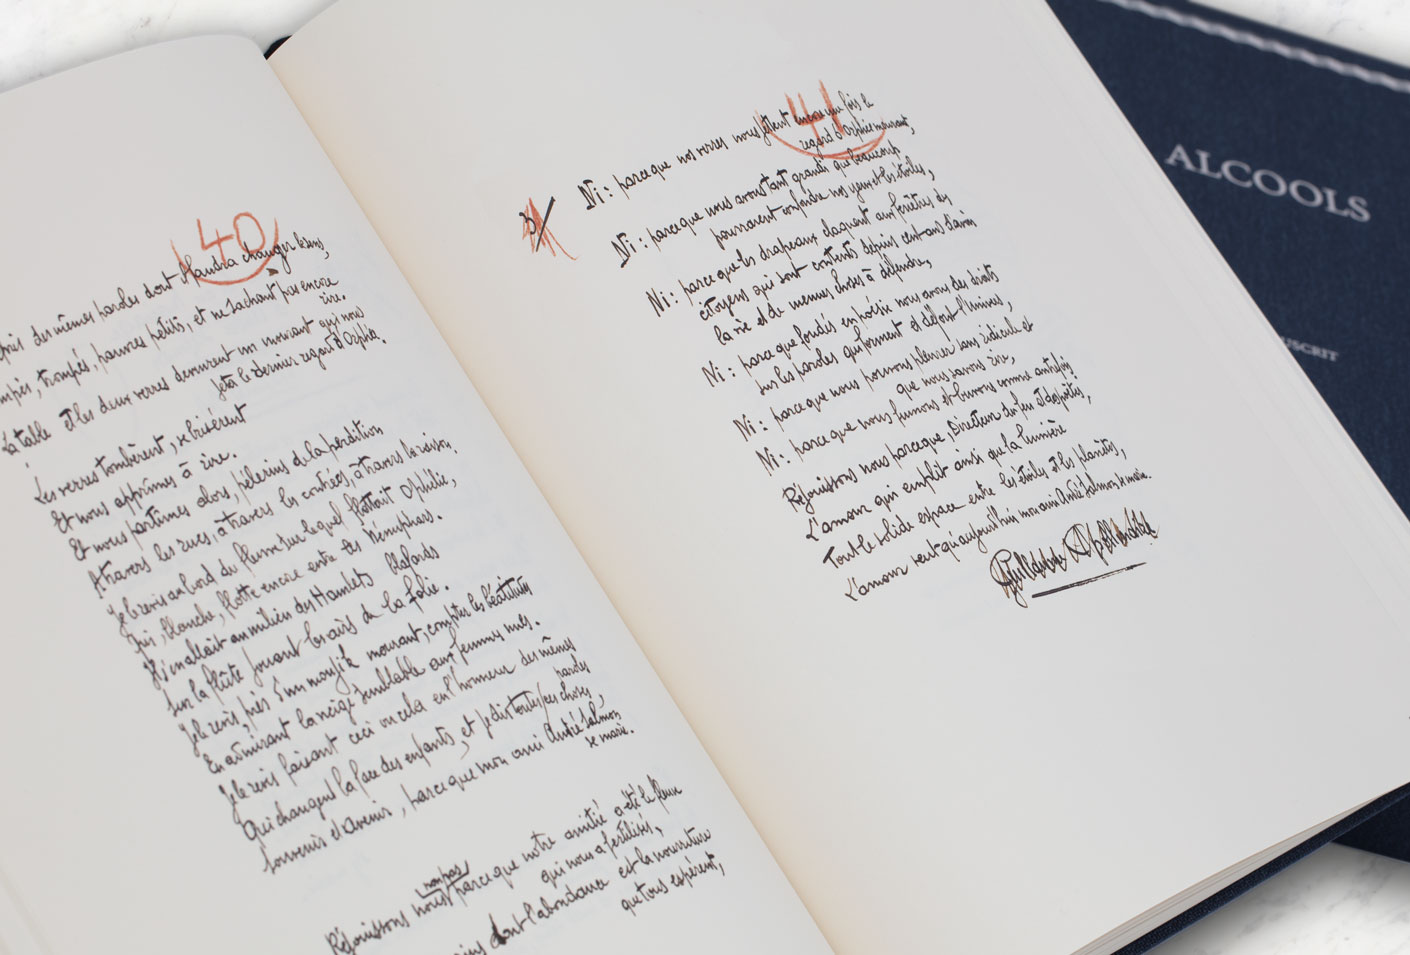 40
près des mêmes paroles dont il faudra changer le sens,
trompés, trompés, pauvres petits, et ne sachant pas encore
rire.
La table et les deux verres devinrent un mourant qui nous
jeta le dernier regard d'Orphée.
Les verres tombèrent, se brisèrent
Et nous apprîmes à rire.
Et nous partîmes alors, pélerins de la perdition
A travers les rues, à travers les contrées, à travers la raison.
Je le revis au bord du fleuve sur lequel flottait Ophélie,
Qui, blanche, flotte encore entre les nénuphars.
Il s'en allait au milieu des Hamlets blafards
Sur la flûte jouant les airs de la folie.
Je le revis, près d'un moujik mourant, compter les béatitudes
En admirant la neige semblable aux femmes nues.
Je le revis faisant ceci ou cela en l'honneur des mêmes
paroles
Qui changent la face des enfants, et je dis toutes ces choses,
Souvenir et Avenir, parce que mon ami André Salmon
se marie.
non pas
Réjouissons nous parce que notre amitié a été le fleuve
qui nous a fertilisés,
dont l'abondance est la nourriture
que tous espèrent,
41
3/
Ni: parce que nos verres nous jettent encore une fois le
regard d'Orphée mourant,
Ni: parce que nous avons tant grandi que beaucoup
pourraient confondre nos yeux et les étoiles,
Ni: parce que les drapeaux claquent aux fenêtres des
citoyens qui sont contents depuis cent ans d'avoir
la vie et de menues choses à défendre,
Ni: parce que fondés en poésie nous avons des droits
sur les paroles qui forment et défont l'Univers,
Ni: parce que nous pouvons pleurer sans ridicule et
que nous savons rire,
Ni: parce que nous fumons et buvons comme autrefois
Réjouissons nous parce que, Directeur du feu et des poètes,
L'amour qui emplit ainsi que la lumière
Tout le solide espace entre les étoiles et les planètes,
L'amour veut qu'aujourd'hui mon ami André Salmon se marie.
Guillaume Apollinaire
ALCOOLS
USCRIT